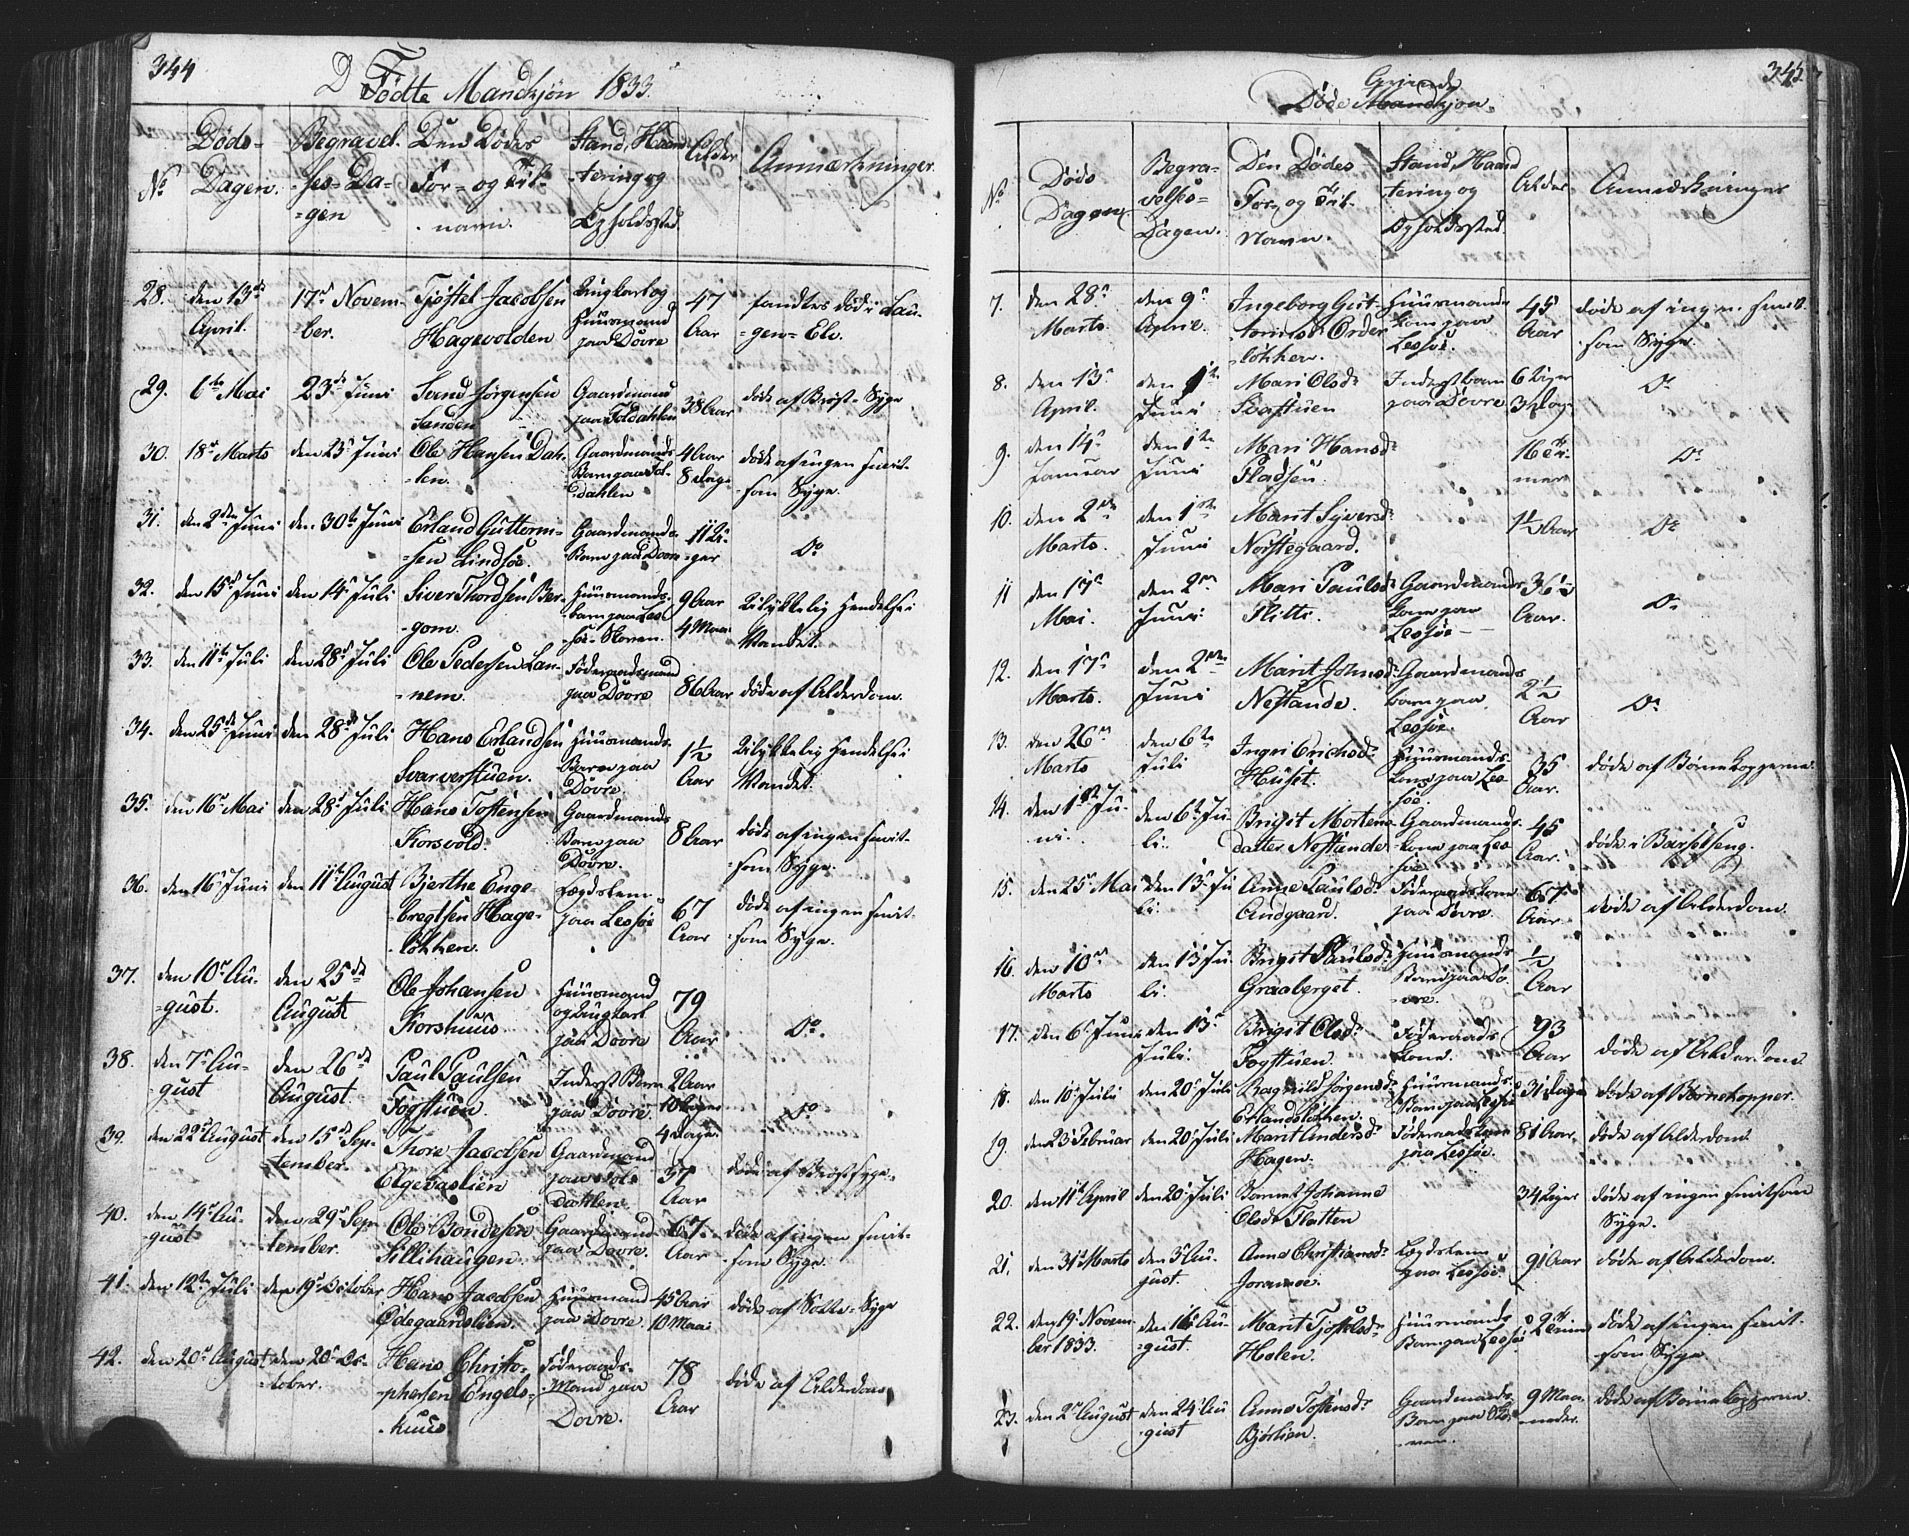 344
Døde Mandkjøn 1833.
No
Døds-
Dagen.
Begravel-
ses-Da-
gen
Den Dødes
For- og Til-
navn.
Stand, Haand-
tering og
Opholdssted.
Alder
Anmærkninger.
28. den 13de April. 17de Novem-
ber. Tjøstel Jacobsen
Hagevolden
Huusmand
paa Dovre
47
Aar
fandtes død i Lau-
gen-Elv.
29. 6te Mai 23de Juni Svend Jørgensen
Sanden
Gaardmand
paa Foldahlen
38 Aar
døde af Bryst-Syge
30. 18de Marts den 23de Juni Ole Hansen Dah-
len.
Gaardmands
Barn paa Fol-
dahlen
4 Aar
8 Dage
døde af ingen smit-
som Syge.
31. den 2den Juni den 30te Juni Erland Guttorm-
sen Lindsøe.
Gaardmands-
Barn paa Dovre
11 U-
ger
Do
32. den 15de Juni den 14de Juli Siver Thordsen Ber-
gom.
Huusmands-
barn paa Les-
søe-Skoven.
9 Aar
4 Maa:
Ulykkelig Hendelse i
Vandet.
33. den 11te Juli den 28de Juli Ole Pedersen Lan-
nem.
Føderaadsmand
paa Dovre
86 Aar
døde af Alderdom.
34. den 25de Juni den 28de Juli Hans Erlandsen
Svarverstuen.
Huusmands-
Barn paa
Dovre.
1½
Aar
Ulykkelig Hendelse i
Vandet.
35. den 16de Mai den 28de Juli Hans Tostensen
Korsvold.
Gaardmands
Barn paa
Dovre.
8 Aar
døde af ingen smit-
som Syge.
36. den 16de Juni den 11te August Bjerthe Enge-
bregtsen Hage-
løkken.
Lægdslem
paa Lessøe
67
Aar
døde af ingen smit-
som Syge.
37. den 10de Au-
gust.
den 25de
August
Ole Johansen
Korshuus
Huusmand
paa Dovre
79
Aar
Do.
38. den 7de Au-
gust
den 26de
August.
Paul Paulsen
Togstuen
Inderst Barn
paa Dovre
2 Aar
10 Uger
4 Dage.
Do
39. den 22de August den 15de Sep-
tember.
Thore Jacobsen
Elgevaslien
Gaardmand
paa Fol-
dahlen.
37
Aar
døde af Brystsyge.
40. den 14de Au-
gust
den 29de Sep-
tember.
Ole Bondesen
Lillihaugen.
Gaardmand
paa Dovre.
67
Aar
døde af ingen smit-
som Syge.
41. den 12te Juli den 19de October Hans Jacobsen
Ødegaardslien.
Huusmand
paa Dovre.
45 Aar
10 Maa:
42. den 20de August den 20de Oc-
tober.
Hans Christo-
phersen Engels-
huus.
Føderaads-
Mand paa
Dovre.
78
Aar
døde af Alderdom
345
Qvinde
Døde Mandkjøn.
No
Døds
Dagen
Begra-
velses-
Dagen.
Den Dødes
For- og Til-
Navn.
Stand, Haand
tering og
Opholdssted.
Alder
Anmærkninger
7. den 28de
Marts.
den 9de
April.
Ingeborg Gut-
tormsdr
løkken.
Huusmands
kone paa
Lessøe.
45
Aar
døde af ingen smit-
som Syge.
8. den 13de
April.
den 1te
Juni
Mari Olsdr
Svastuen
Inderst barn
paa Dovre
6 Uger
3 Dag
Do
9. den 14de
Januar
den 1te
Juni
Mari Hansdr
Pladsen.
16 Ti-
mer
Do
10. den 2den
Marts.
den 1te
Juni
Marit Syversdr
Norstegaard.
1½ Aar
Do
11 den 17de
Mai.
den 2den
Juni
Mari Paulsdr
Flitti.
Gaardmands
kone paa
Lessøe
36½
Aar.
Do
12. den 17de
Marts.
den 2den
Juni
Marit Johnsdr
Nestande.
Gaardmands
barn paa
Lessøe.
2½
Aar
Do
13. den 26de
Marts
den 6te
Juli
Ingri Erichsdr
Huset.
Huusmands-
kone paa Les-
søe.
35
Aar.
døde af Børnekopperne.
14. den 1ste Ju-
ni.
den 6te Ju-
li.
Brigit Mortens-
datter Nestande
Gaardmands-
kone paa Les-
søe
45
Aar.
døde i Barselseng.
15. den 25de Mai den 13de Ju-
li.
Anne Paulsdr
Andgaard.
Føderaadskone
paa Dovre.
67
Aar.
døde af Alderdom.
16. den 10de
Marts
den 13de Ju-
li.
Brigit Paulsdr
Graaberget.
Huusmands
Barn paa Do-
vre.
½
Aar
17. den 6te Juni den 13de
Juli.
Brigit Olsdr
Togstuen.
Føderaads
kone.
93
Aar
døde af Alderdom
18. den 10de Juli den 20de Juli Ragnild Jørgensdr
Erlandsløkken.
Huusmands
Barn paa Lessøe
31 Dage
døde af Børnekopper.
19. den 23de Februar den 20de Juli Marit Andersdr
Hagen.
Føderaadskone
paa Lessøe.
81 Aar.
døde af Alderdom.
20. den 11te April den 20de Juli Johanne
Olsdr Flatten
34 Uger
døde af ingen smitsom
Syge.
21. den 31te Marts den 3de Au-
gust.
Anne Christiansdr
Joramoe.
Lægdslem
paa Lessøe.
91 Aar
døde af Alderdom.
22. den 19de Novem-
ber 1833.
den 16de Au-
gust.
Marit Tjøstelsdr
Holen.
Huusmands
Barn paa Lessøe
døde af ingen smit-
som Syge
23. den 2den August den 24de Au-
gust
Anne Tostensdr
Bjørlien.
Gaardmands
Barn paa Sko-
ven.
9 Maa-
neder.
døde af Børnekopperne